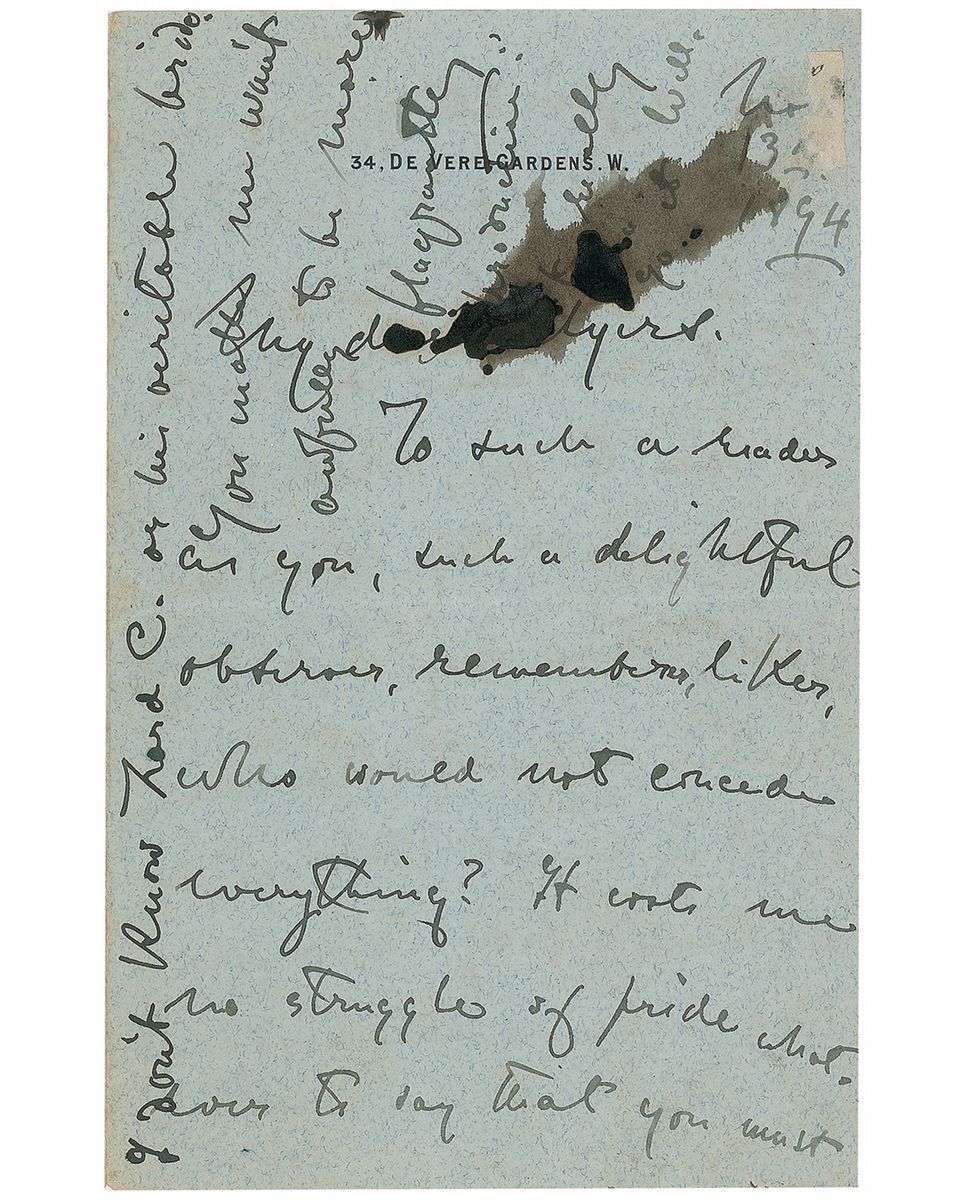 34, DE VERE GARDENS. W.
1894
My d yers.
To such a reader
as you, such a delightful
observer, rememberer, liker,
who would not concede
everything? It costs me
no struggle of pride what-
ever to say that you must
I don't know Lord C. or his veritable bride.
You make me want
awfully to be more
flagrantly